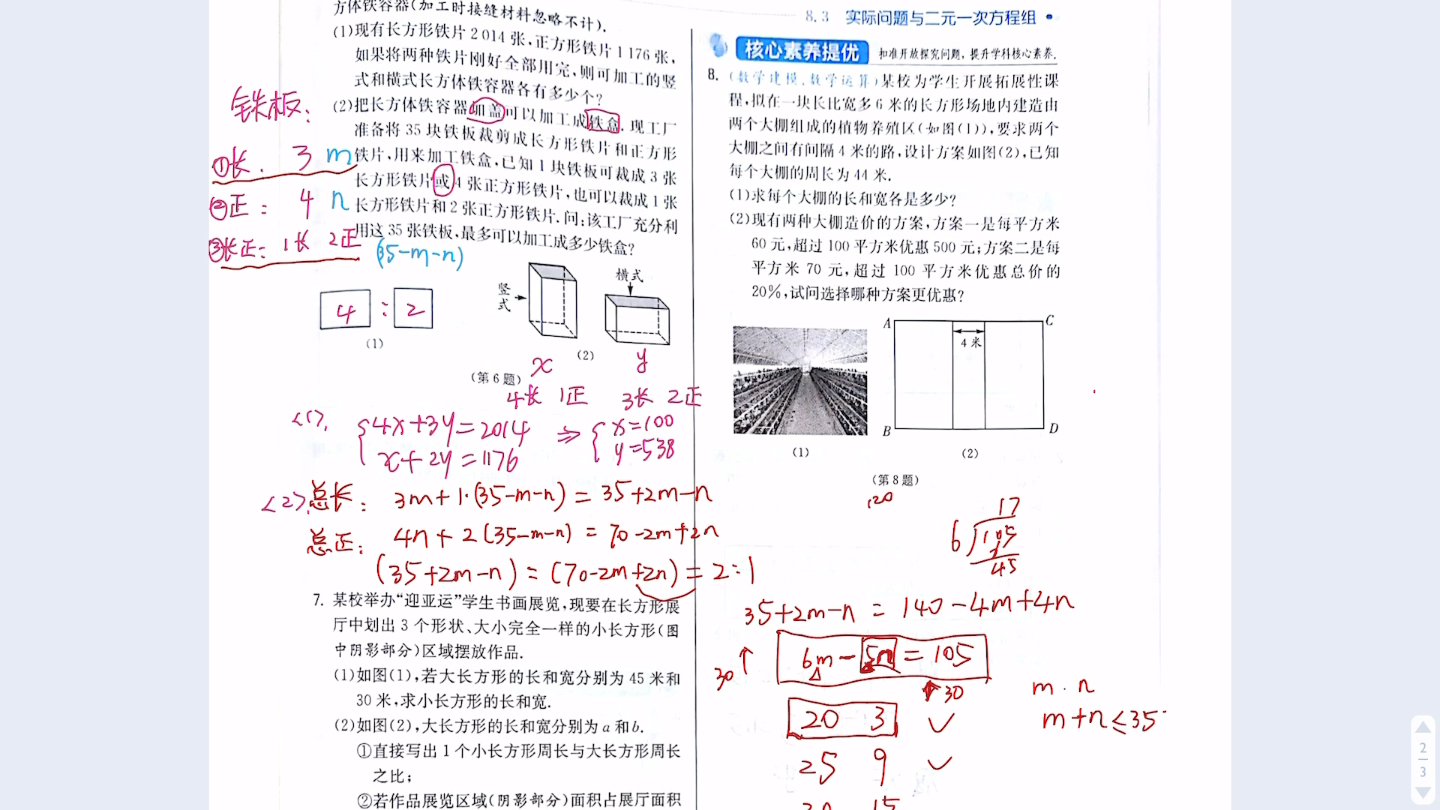 方体铁容器(加工时接缝材料忽略不计).
(1)现有长方形铁片2014张,正方形铁片1176张,
如果将两种铁片刚好全部用完,则可加工的竖
式和横式长方体铁容器各有多少个?
(2)把长方体铁容器加盖可以加工成铁盒.现工厂
准备将35块铁板裁剪成长方形铁片和正方形
铁片,用来加工铁盒,已知1块铁板可裁成3张
长方形铁片或4张正方形铁片,也可以裁成1张
长方形铁片和2张正方形铁片.问:该工厂充分利
用这35张铁板,最多可以加工成多少铁盒?
铁板:
①长. 3 m
②正: 4 n
③长正: 1长 2正
(35-m-n)
4 : 2
(1)
竖式
横式
(2)
x y
(第6题)
4长 1正 3长 2正
<1>. {4x+3y=2014 ⇒ {x=100
x+2y=1176 y=538
<2>. 总长: 3m+1·(35-m-n)=35+2m-n
总正: 4n+2(35-m-n)=70-2m+2n
(35+2m-n)=(70-2m+2n)=2:1
7. 某校举办“迎亚运”学生书画展览,现要在长方形展
厅中划出3个形状、大小完全一样的小长方形(图
中阴影部分)区域摆放作品.
(1)如图(1),若大长方形的长和宽分别为45米和
30米,求小长方形的长和宽.
(2)如图(2),大长方形的长和宽分别为a和b.
①直接写出1个小长方形周长与大长方形周长
之比;
②若作品展览区域(阴影部分)面积占展厅面积
8.3 实际问题与二元一次方程组
核心素养提优 扣准开放探究问题,提升学科核心素养.
8. (数学建模、数学运算)某校为学生开展拓展性课
程,拟在一块长比宽多6米的长方形场地内建造由
两个大棚组成的植物养殖区(如图(1)),要求两个
大棚之间有间隔4米的路,设计方案如图(2),已知
每个大棚的周长为44米.
(1)求每个大棚的长和宽各是多少?
(2)现有两种大棚造价的方案,方案一是每平方米
60元,超过100平方米优惠500元;方案二是每
平方米70元,超过100平方米优惠总价的
20%,试问选择哪种方案更优惠?
A C
4米
B D
(1) (2)
(第8题)
120
17
6 105
45
35+2m-n=140-4m+4n
30↑ 6m-5n=105
↑30
20 3 ✓
25 9 ✓
30 15
m·n
m+n≤35
2
3